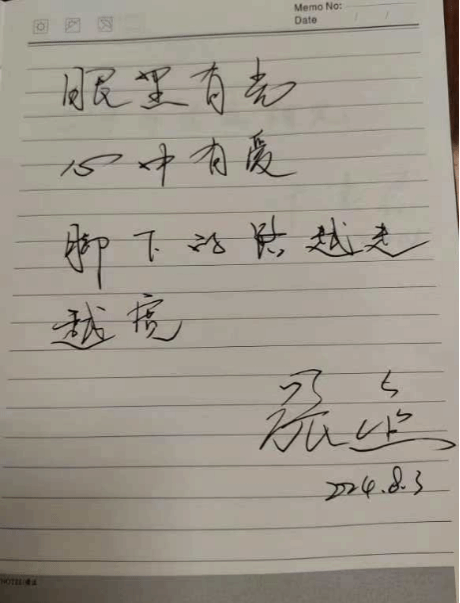 Memo No:
Date / /
眼里有光
心中有爱
脚下的路越走
越宽
2024.8.3